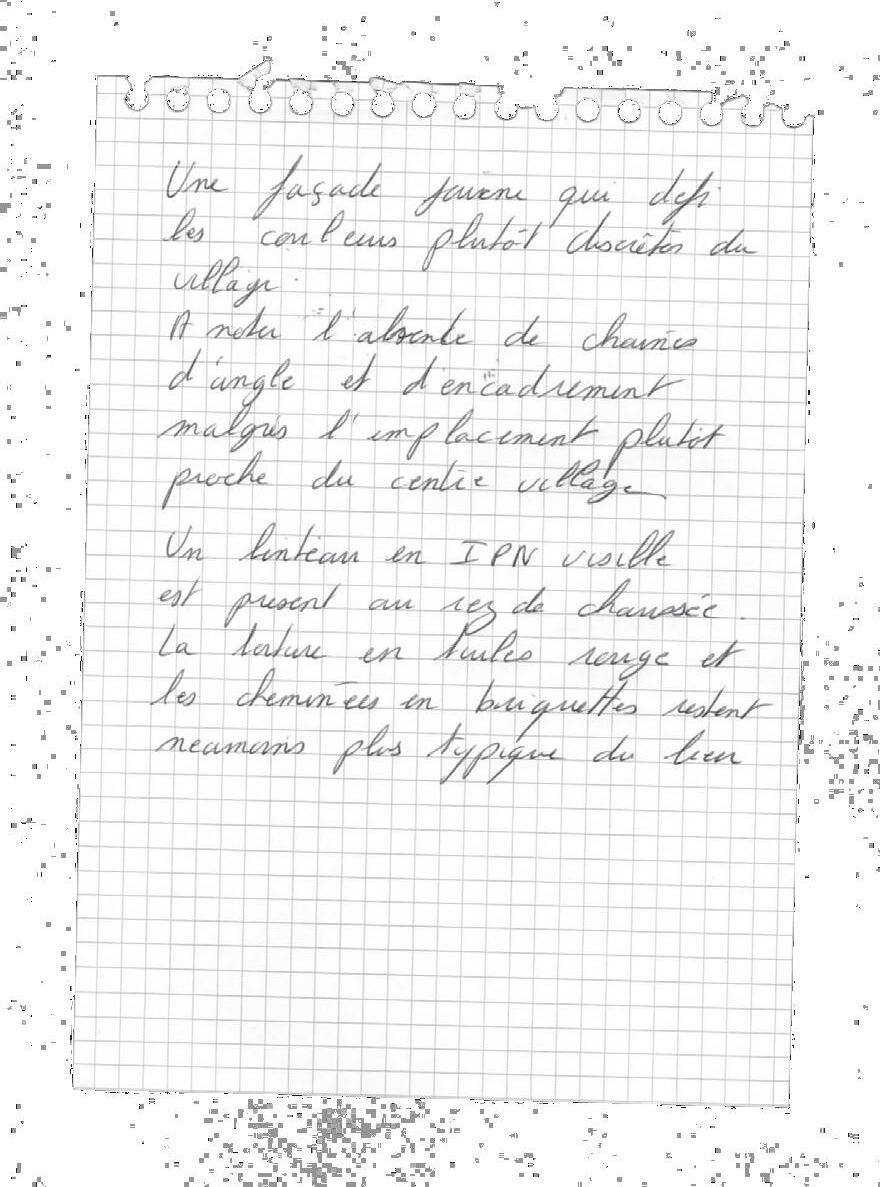 Une façade jaune qui defi
les couleurs plutôt discrêtes du
village.
A noter l'absence de chaines
d'angle et d'encadrement
malgrès l'emplacement plutôt
proche du centre village
Un linteau en IPN visible
est present au rez de chaussée.
La toiture en tuiles rouge et
les cheminées en briquettes restent
neamoins plus typique du lieu